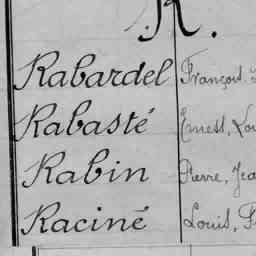 R.
Rabardel François
Rabasté Ernest, Lou
Rabin Pierre, Jea
Raciné Louis, F